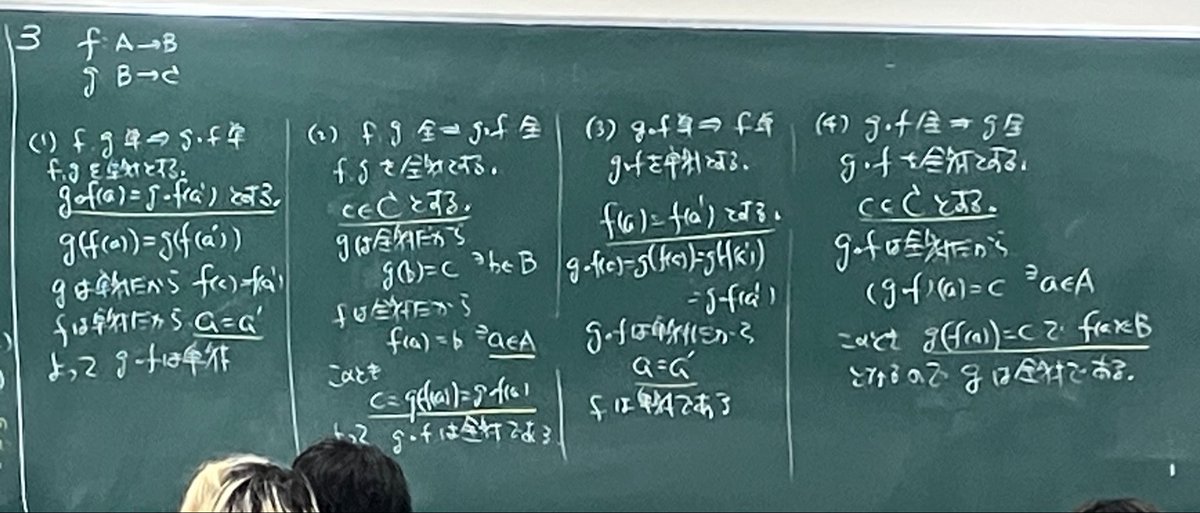 3 f: A→B
g B→C
(1) f, g 単 ⇒ g∘f 単
f, g を単射とする。
g∘f(a)=g∘f(a') とする。
g(f(a))=g(f(a'))
g は単射だから f(a)=f(a')
fは単射だから a=a'
よって g∘fは単射
(2) f, g 全 ⇒ g∘f 全
f, g を全射とする。
c∈C とする。
gは全射だから
g(b)=c ∃b∈B
fは全射だから
f(a)=b ∃a∈A
このとき
c=g(f(a))=g∘f(a)
よって g∘fは全射である
(3) g∘f 単 ⇒ f 単
g∘fを単射とする。
f(a)=f(a') とする。
g∘f(a)=g(f(a))=g(f(a'))
=g∘f(a')
g∘fは単射だから
a=a'
f は単射である
(4) g∘f 全 ⇒ g 全
g∘f を全射とする。
c∈C とする。
g∘fは全射だから
(g∘f)(a)=c ∃a∈A
このとき g(f(a))=c で f(a)∈B
となるので g は全射である。